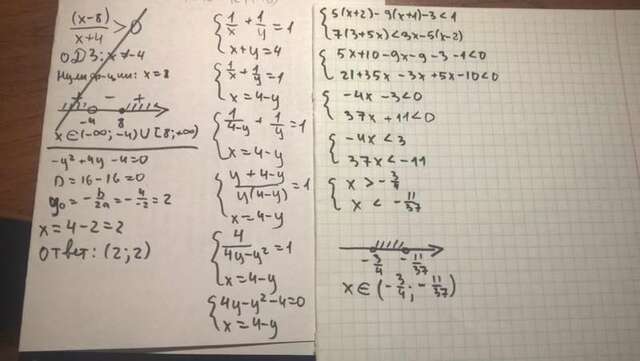 (x-8)/(x+4) > 0
ОДЗ: x ≠ -4
Нули ф-ции: x = 8
+ - +
-4 8
x ∈ (-∞; -4) ∪ [8; +∞)
-y² + 4y - 4 = 0
D = 16 - 16 = 0
y₀ = -b/2a = -4/-2 = 2
x = 4 - 2 = 2
Ответ: (2; 2)
{ 1/x + 1/y = 1
x + y = 4
{ 1/x + 1/y = 1
x = 4 - y
{ 1/(4-y) + 1/y = 1
x = 4 - y
{ (y + 4 - y)/(y(4-y)) = 1
x = 4 - y
{ 4/(4y - y²) = 1
x = 4 - y
{ 4y - y² - 4 = 0
x = 4 - y
{ 5(x+2) - 9(x+1) - 3 < 1
7(3+5x) < 3x - 5(x-2)
{ 5x + 10 - 9x - 9 - 3 - 1 < 0
21 + 35x - 3x + 5x - 10 < 0
{ -4x - 3 < 0
37x + 11 < 0
{ -4x < 3
37x < -11
{ x > -3/4
x < -11/37
-3/4 -11/37
x ∈ (-3/4; -11/37)